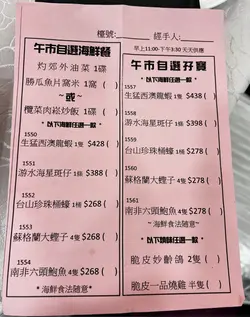 檯號: 經手人:
午市自選海鮮餐
灼郊外油菜 1碟
勝瓜魚片窩米 1窩 ( )
~或~
欖菜肉崧炒飯 1碟 ( )
*以下海鮮任選一款*
1550
生猛西澳龍蝦 1隻 $428 ( )
1551
游水海星斑仔 1條 $388 ( )
1552
台山珍珠桶蠔 1桶 $268 ( )
1553
蘇格蘭大蟶子 4隻 $268 ( )
1554
南非六頭鮑魚 4隻 $268 ( )
*海鮮食法隨意*
早上11:00-下午3:30 天天供應
午市自選孖寶
*以下海鮮任選一款*
1557
生猛西澳龍蝦 1隻 $438 ( )
1558
游水海星斑仔 1條 $398 ( )
1559
台山珍珠桶蠔 1桶 $278 ( )
1560
蘇格蘭大蟶子 4隻 $278 ( )
1561
南非六頭鮑魚 4隻 $278 ( )
~海鮮食法隨意~
*以下燒味任選一款*
脆皮妙齡鴿 2隻 ( )
脆皮一品燒雞 半隻 ( )